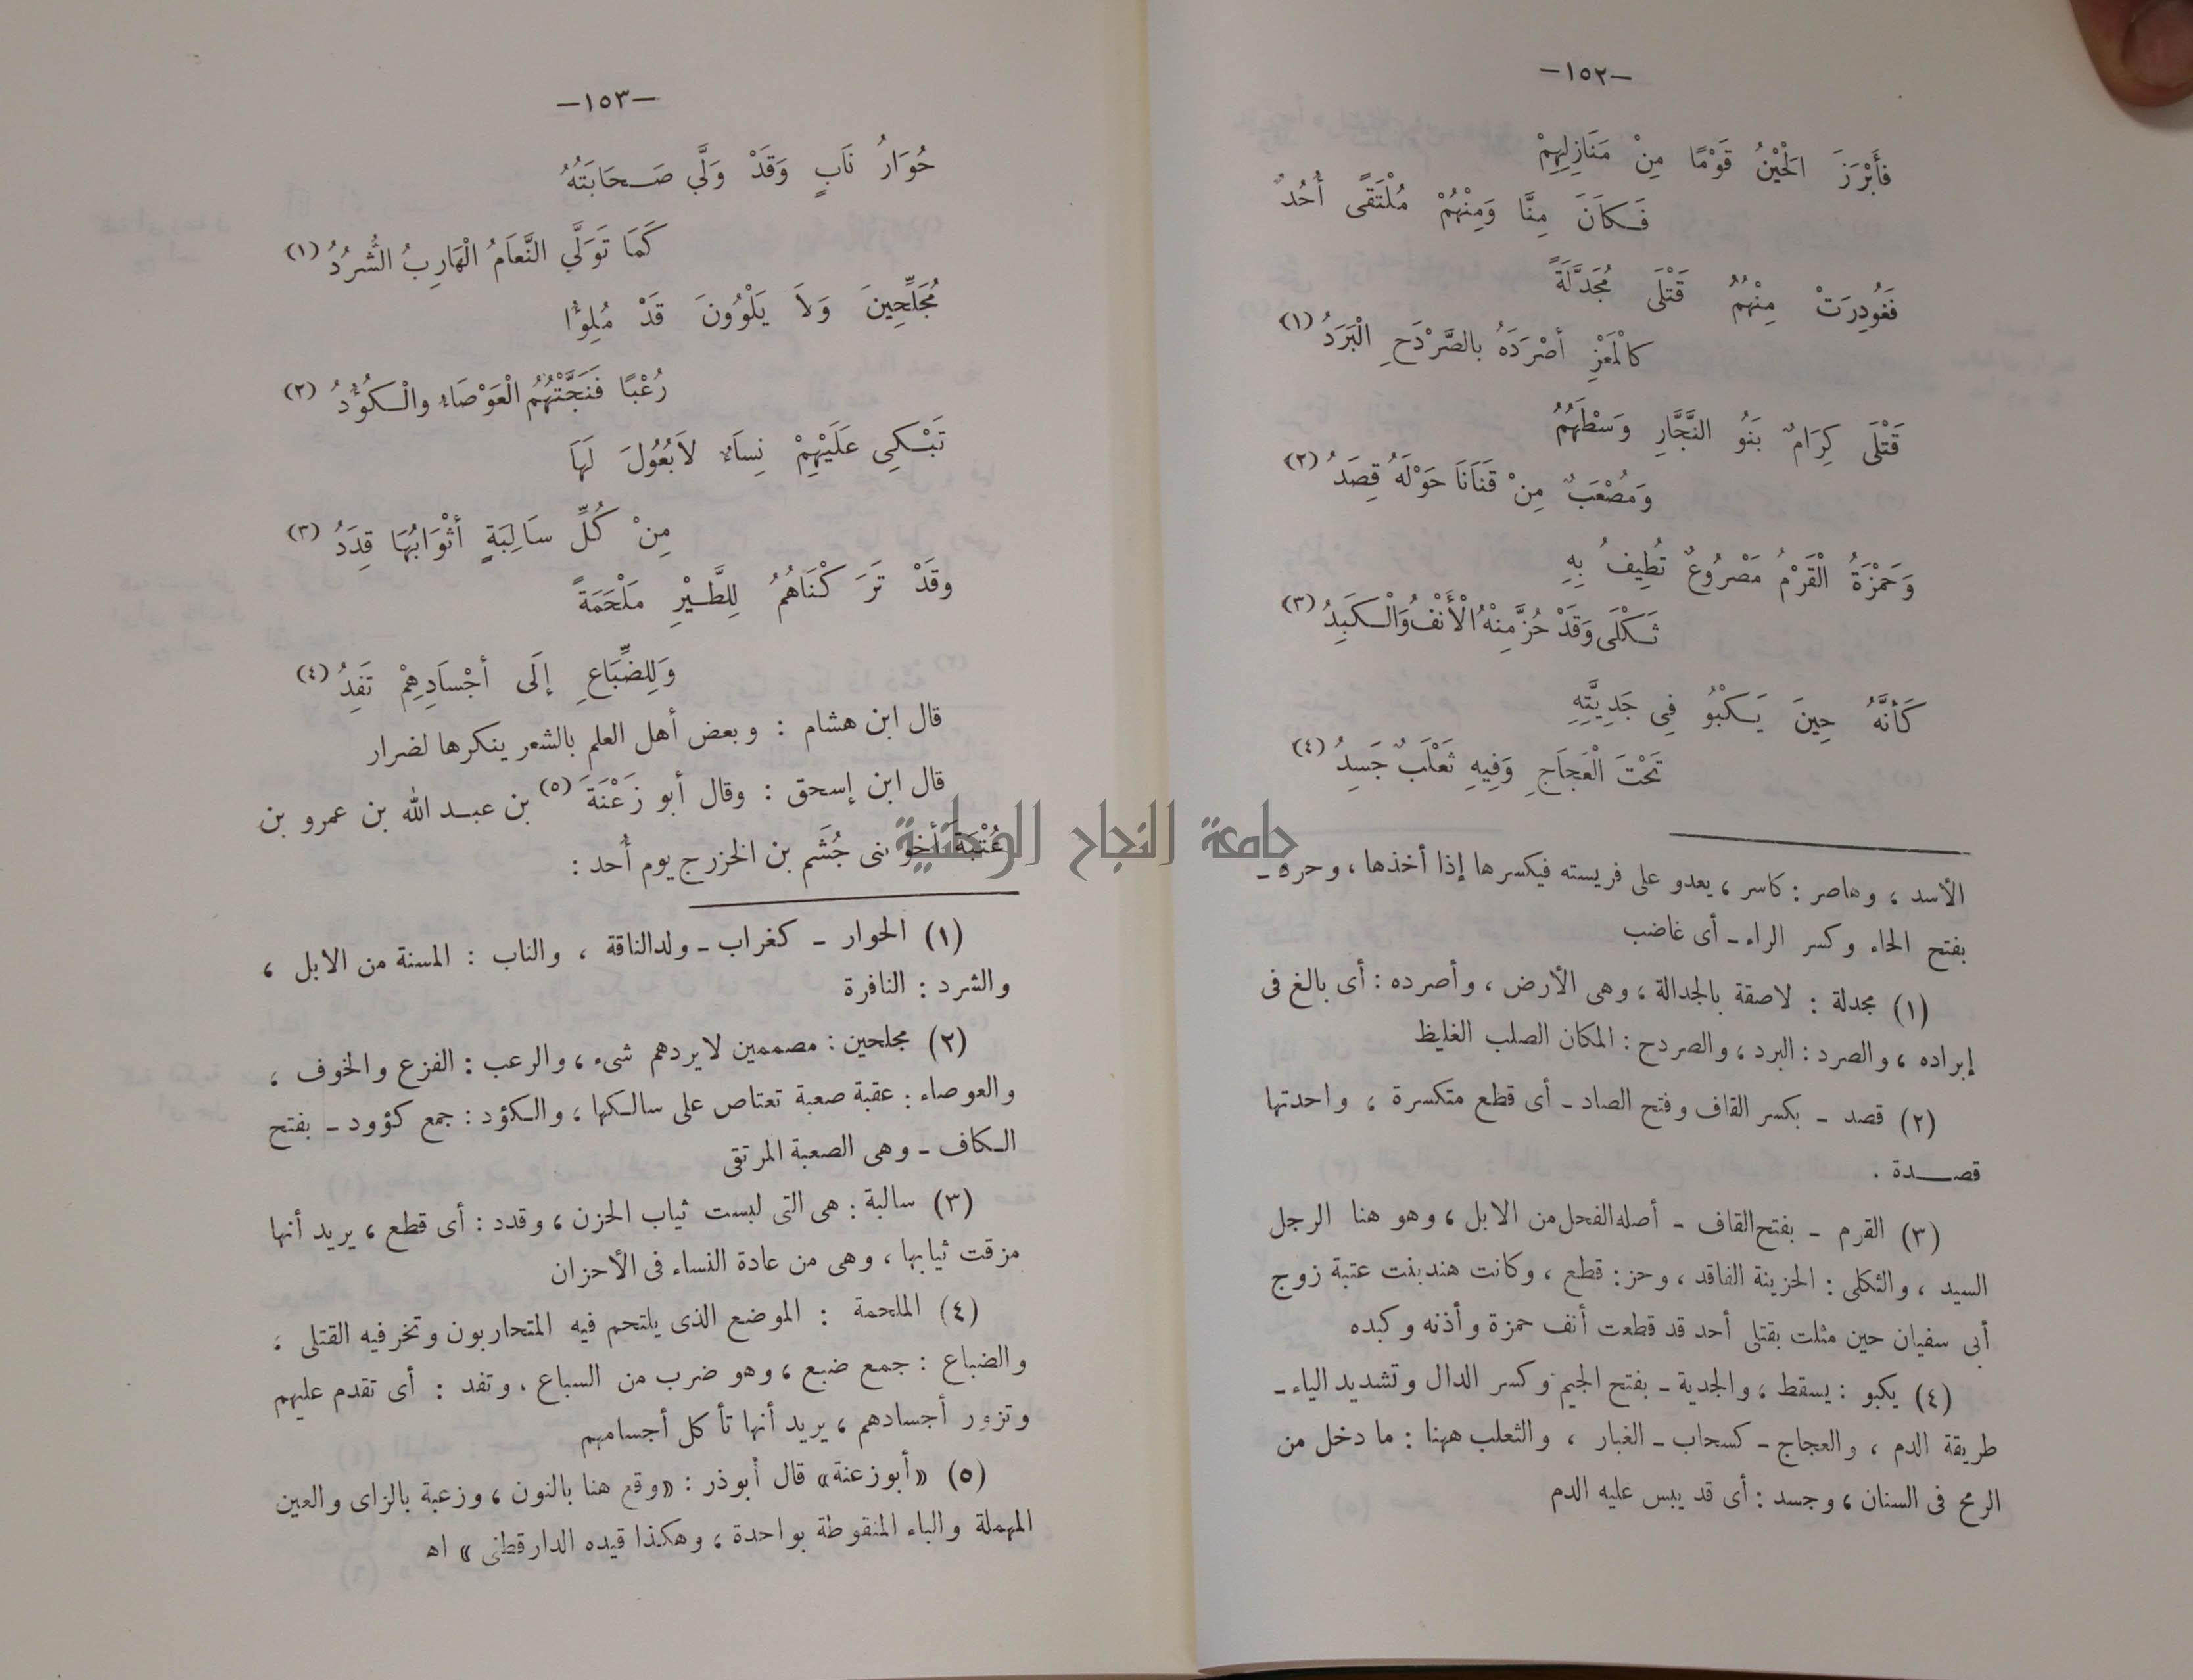 —١٥٢—
فأَبْرَزَ الْحَيْنُ قَوْمًا مِنْ مَنَازِلِهِمْ
فَكاَنَ مِنَّا وَمِنْهُمْ مُلْتَقًى أُحُدُ
فَغُودِرَتْ مِنْهُمُ قَتْلَى مُجَدَّلَةً
كالْمَعْزِ أصْرَدَهُ بالصَّرْدَحِ الْبَرَدُ (١)
قَتْلَى كِرَامٌ بَنُو النَّجَّارِ وَسْطَهُمُ
وَمُصْعَبٌ مِنْ قَنَانَا حَوْلَهُ قِصَدُ (٢)
وَحَمْزَةُ الْقَرْمُ مَصْرُوعٌ تُطِيفُ بِهِ
ثَكْلَى وَقَدْ حُزَّ مِنْهُ الْأَنْفُ وَالْكَبِدُ (٣)
كَأنَّهُ حِينَ يَكْبُو فِى جَدِيَّتِهِ
تَحْتَ الْعَجاَجِ وَفِيهِ ثَعْلَبٌ جَسِدُ (٤)
الأسد ، وهاصر : كاسر ، يعدو على فريسته فيكسرها إذا أخذها ، وحرد ـ
بفتح الحاء وكسر الراء ـ أى غاضب
(١) مجدلة : لاصقة بالجدالة ، وهى الأرض ، وأصرده : أى بالغ فى
إبراده ، والصرد : البرد ، والصردح : المكان الصلب الغليظ
(٢) قصد ـ بكسر القاف وفتح الصاد ـ أى قطع متكسرة ، واحدتها
قصـــدة .
(٣) القرم ـ بفتح القاف ـ أصله الفحل من الابل ، وهو هنا الرجل
السيد ، والثكلى : الحزينة الفاقد ، وحز : قطع ، وكانت هند بنت عتبة زوج
أبى سفيان حين مثلت بقتلى أحد قد قطعت أنف حمزة وأذنه وكبده
(٤) يكبو : يسقط ، والجدية ـ بفتح الجيم وكسر الدال وتشديد الياء ـ
طريقة الدم ، والعجاج ـ كسحاب ـ الغبار ، والثعلب ههنا : ما دخل من
الرمح فى السنان ، وجسد : أى قد يبس عليه الدم
—١٥٣—
حُوَارُ نَابٍ وَقَدْ وَلَّي صَحَابَتُهُ
كَمَا تَوَلَّي النَّعاَمُ الْهَارِبُ الشُّرُدُ (١)
مُجَلِّحِينَ وَلاَ يَلْوُونَ قَدْ مُلِئُوا
رُعْبًا فَنَجَّتْهُمُ الْعَوْصَاءُ والْكُؤُدُ (٢)
تَبْكِى عَلَيْهِمْ نِسَاَءٌ لاَبُعُولَ لَهَا
مِنْ كُلِّ سَالِبَةٍ أثْوَابُهَا قِدَدُ (٣)
وقَدْ تَرَكْنَاهُمُ لِلطَّيْرِ مَلْحَمَةً
وَلِلضِّبَاعِ إلَى أجْسَادِهِمْ تَفِدُ (٤)
قال ابن هشام : وبعض أهل العلم بالشعر ينكرها لضرار
قال ابن إسحق : وقال أبو زَعْنَةَ (٥) بن عبد الله بن عمرو بن
عُتْبَة أخو بنى جُشَم بن الخزرج يوم أُحد :
(١) الحوار ـ كغراب ـ ولدالناقة ، والناب : المسنة من الابل ،
والشرد : النافرة
(٢) مجلحين : مصممين لايردهم شىء ، والرعب : الفزع والخوف ،
والعوصاء : عقبة صعبة تعتاص على سالكها ، والكؤد : جمع كؤود ـ بفتح
الكاف ـ وهى الصعبة المرتقى
(٣) سالبة : هى التى لبست ثياب الحزن ، وقدد : أى قطع ، يريد أنها
مزقت ثيابها ، وهى من عادة النساء فى الأحزان
(٤) الملحمة : الموضع الذى يلتحم فيه المتحاربون وتخرفيه القتلى ،
والضباع : جمع ضبع ، وهو ضرب من السباع ، وتفد : أى تقدم عليهم
وتزور أجسادهم ، يريد أنها تأكل أجسامهم
(٥) «أبوزعنة» قال أبوذر : «وقع هنا بالنون ، وزعبة بالزاى والعين
المهملة والباء المنقوطة بواحدة ، وهكذا قيده الدارقطنى» اه
جامعة النجاح الوطنية